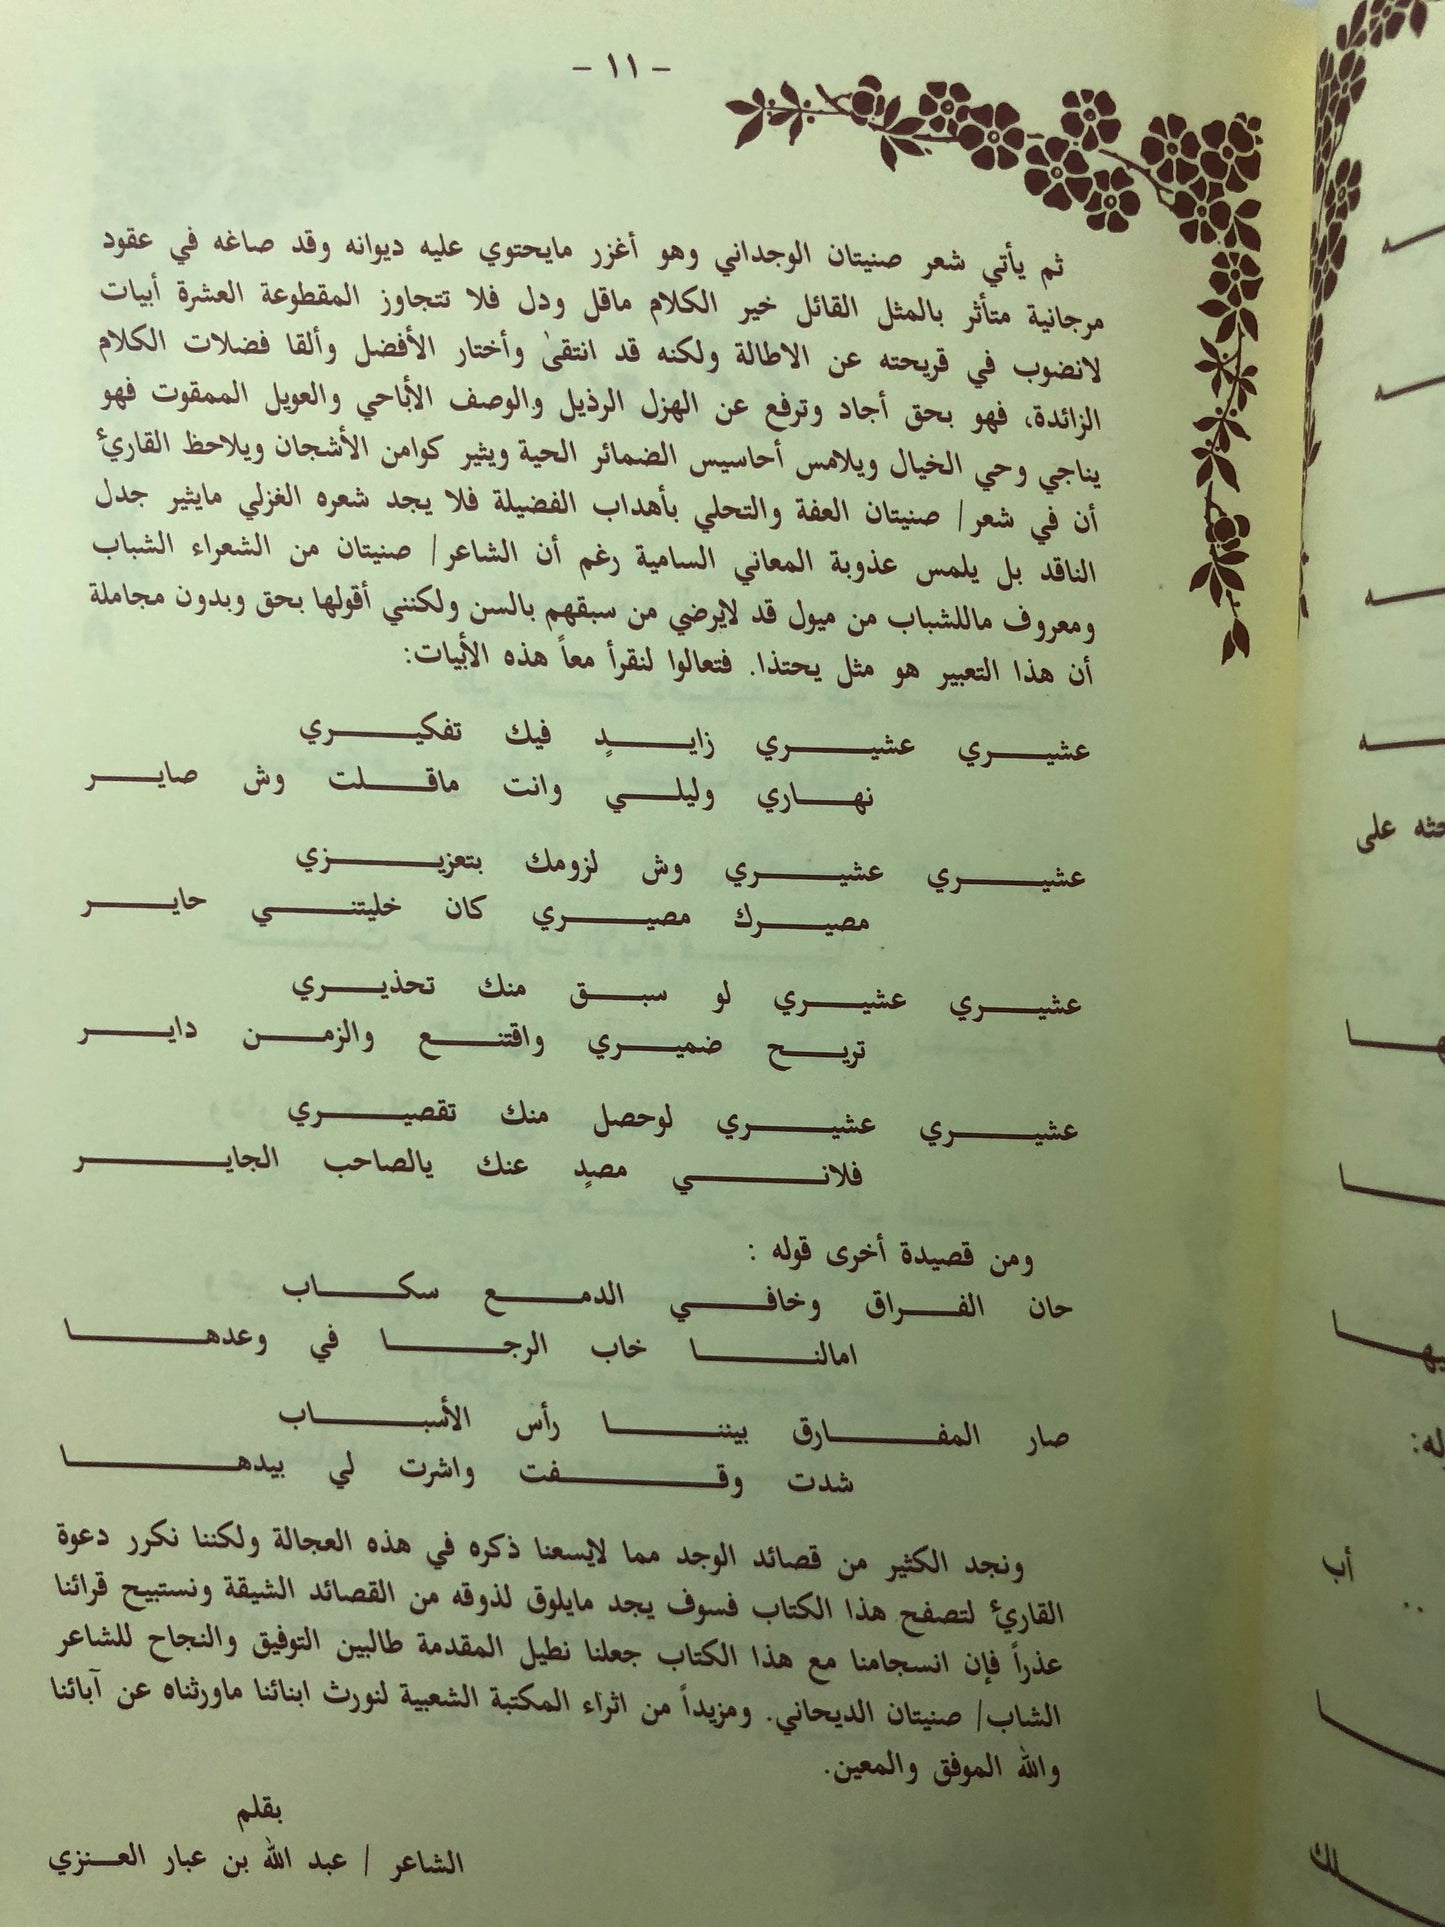 - ١١ -
ثم يأتي شعر صنيتان الوجداني وهو أغزر مايحتوي عليه ديوانه وقد صاغه في عقود
مرجانية متأثر بالمثل القائل خير الكلام ماقل ودل فلا تتجاوز المقطوعة العشرة أبيات
لانضوب في قريحته عن الاطالة ولكنه قد انتقىٰ وأختار الأفضل وألقا فضلات الكلام
الزائدة، فهو بحق أجاد وترفع عن الهزل الرذيل والوصف الأباحي والعويل الممقوت فهو
يناجي وحي الخيال ويلامس أحاسيس الضمائر الحية ويثير كوامن الأشجان ويلاحظ القارئ
أن في شعر/ صنيتان العفة والتحلي بأهداب الفضيلة فلا يجد شعره الغزلي مايثير جدل
الناقد بل يلمس عذوبة المعاني السامية رغم أن الشاعر/ صنيتان من الشعراء الشباب
ومعروف ماللشباب من ميول قد لايرضي من سبقهم بالسن ولكنني أقولها بحق وبدون مجاملة
أن هذا التعبير هو مثل يحتذا. فتعالوا لنقرأ معاً هذه الأبيات:
عشيـــري عشيـــري زايـــدٍ فيك تفكيـــري
نهـــاري وليلـــي وانت ماقـــلت وش صايـــر
عشيـــري عشيـــري وش لزومك بتعزيـــزي
مصيـــرك مصيـــري كان خليتنـــي حايـــر
عشيـــري عشيـــري لو سبـــق منك تحذيـــري
تريـــح ضميـــري واقتنـــع والزمـــن دايـــر
عشيـــري عشيـــري لوحصل منك تقصيـــري
فلانـــي مصدٍ عنك يالصاحب الجايـــر
ومن قصيدة أخرى قوله :
حان الفـــراق وخافـــي الدمـــع سكـــاب
امالنـــا خاب الرجـــا في وعدهـــا
صار المفـــارق بيننـــا رأس الأسبـــاب
شدت وقـــفت واشرت لي بيدهـــا
ونجد الكثير من قصائد الوجد مما لايسعنا ذكره في هذه العجالة ولكننا نكرر دعوة
القارئ لتصفح هذا الكتاب فسوف يجد مايلوق لذوقه من القصائد الشيقة ونستبيح قرائنا
عذراً فإن انسجامنا مع هذا الكتاب جعلنا نطيل المقدمة طالبين التوفيق والنجاح للشاعر
الشاب/ صنيتان الديحاني. ومزيداً من اثراء المكتبة الشعبية لنورث ابنائنا ماورثناه عن آبائنا
والله الموفق والمعين.
بقلم
الشاعر / عبد الله بن عبار العـــنزي
على
أب